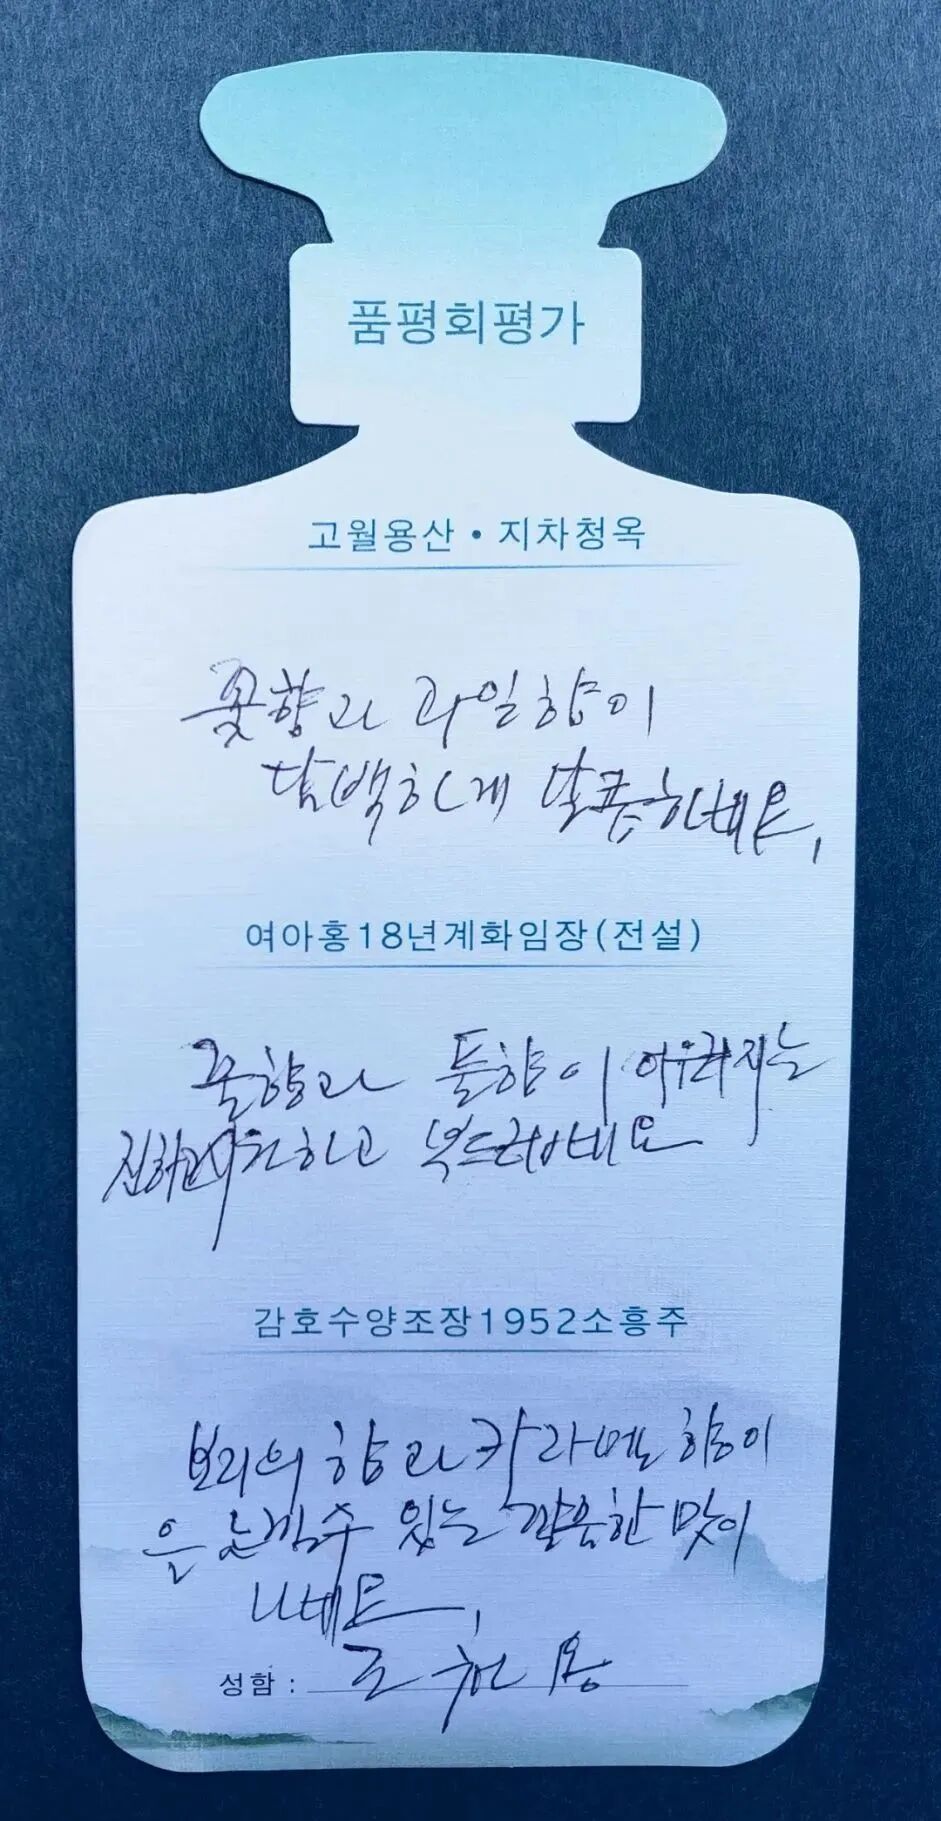 품평회평가
고월용산·지차청옥
꽃향과 과일향이
담백하게 달콤하네요,
여아홍18년계화임장(전설)
꿀향과 풀향이 어우러지는
진하고 하고 부드러바네요
감호수양조장1952소흥주
보리의 향과 카라멜 향이
은 느낄수 있는 깔끔한 맛이
네요,
성함: 조 용